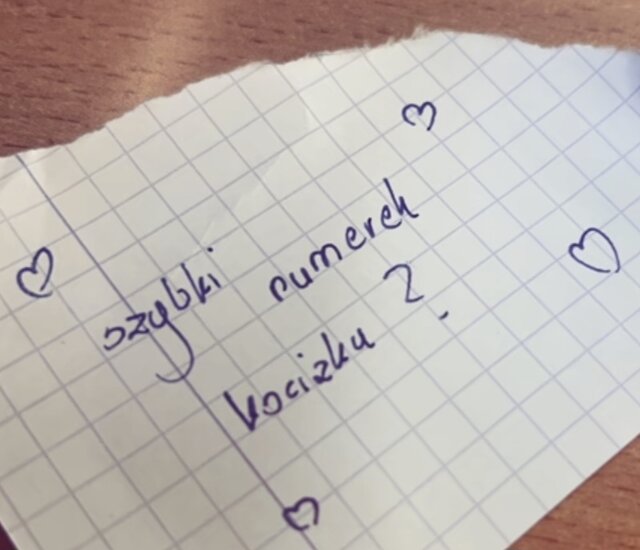 szybki numerek
kocizku ?